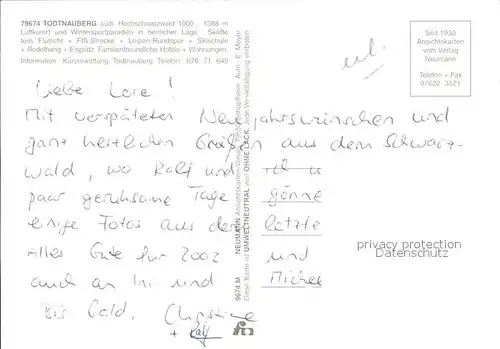 79674 TODTNAUBERG südl. Hochschwarzwald 1000 - 1388 m
Luftkurort und Wintersportparadies in herrlicher Lage. Skilifte
teils Flutlicht + FIS-Strecke + Loipen-Rundspur + Skischule
+ Rodelhang + Eisplatz. Familienfreundliche Hotels + Wohnungen.
Information Kurverwaltung Todtnauberg Telefon 076 71 649
Seit 1930
Ansichtskarten
vom Verlag
Neumann
Telefon + Fax
07622 3521
Liebe Lore!
Mit verspäteten Neujahrswünschen und
ganz herzlichen Grüßen aus dem Schwarz-
wald, wo Ralf und ich
paar geruhsame Tage gönne
einige Fotos aus der letzte
Alles Gute für 2002 und
auch an und Michae
Bis bald. Christine
+ Ralf
9674 M NEUMANN Ansichtskarten-Verlag
Diese Karte ist UMWELTNEUTRAL weil OHNE LACK. Jede Vervielfältigung verboten
privacy protection
Datenschutz